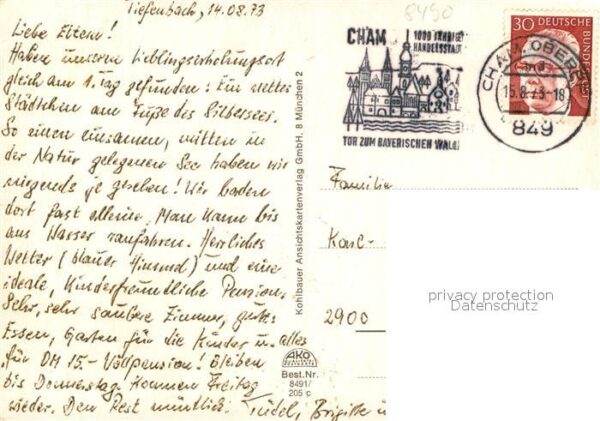 Tiefenbach, 14.08.73
Liebe Eltern!
Haben unseren Lieblingserholungsort
gleich am 1. Tag gefunden: Ein nettes
Städtchen am Fuße des Silbersees.
So einen einsamen, mitten in
der Natur gelegenen See haben wir
nirgends je gesehen! Wir baden
dort fast alleine. Man kann bis
ans Wasser ranfahren. Herrliches
Wetter (blauer Himmel) und eine
ideale, kinderfreundliche Pension.
Sehr, sehr saubere Zimmer, gutes
Essen, Garten für die Kinder u. alles
für DM 15.- Vollpension! Bleiben
bis Donnerstag. Kommen Freitag
wieder. Den Rest mündlich. Brigitte
Kohlbauer Ansichtskartenverlag GmbH. 8 München 2
AKO
Best.Nr.
8491/
205 c
8490
CHAM
1000 JÄHRIGE
HANDELSSTADT
TOR ZUM BAYERISCHEN WALD
CHAM, OBERPF
15.8.73-18
849
30 DEUTSCHE
BUNDESPOST
Familie
Karl-
2900
privacy protection
Datenschutz